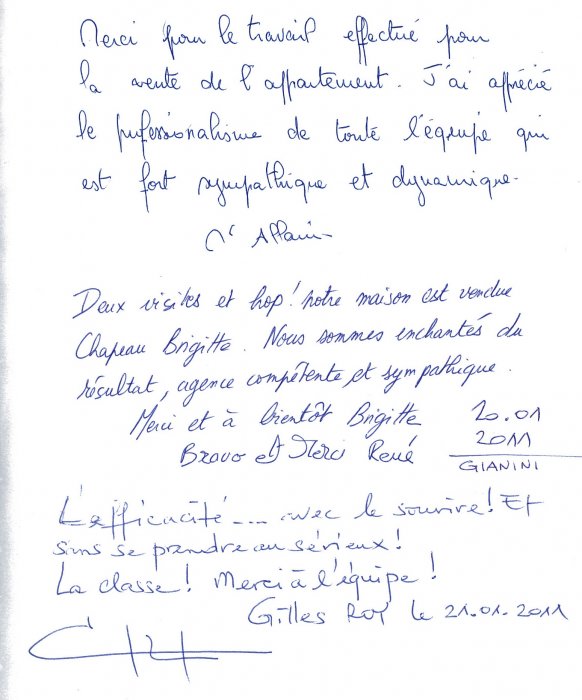 Merci pour le travail effectué pour
la vente de l'appartement. J'ai apprécié
le professionalisme de toute l'équipe qui
est fort sympathique et dynamique.
Allain
Deux visites et hop! notre maison est vendue
Chapeau Brigitte. Nous sommes enchantés du
résultat, agence compétente et sympathique.
Merci et à bientôt Brigitte
Bravo et Merci René
20.01
2011
GIANINI
L'efficacité.... avec le sourire! Et
sans se prendre au sérieux!
La classe! Merci à l'équipe!
Gilles ROY le 21.01.2011